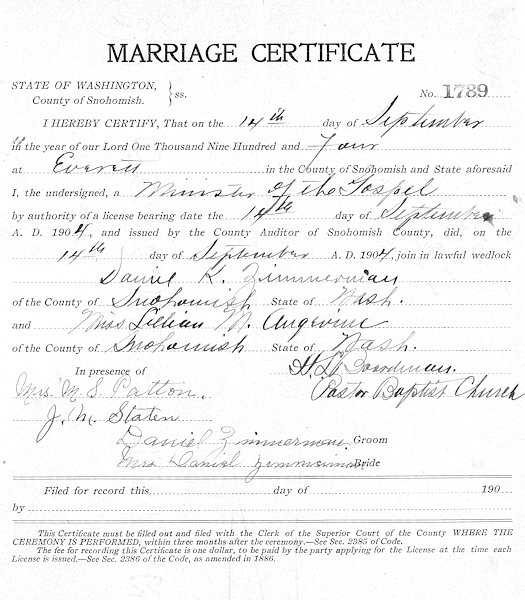 MARRIAGE CERTIFICATE
STATE OF WASHINGTON, } ss.
County of Snohomish.
No. 1789
I HEREBY CERTIFY, That on the 14th day of September
in the year of our Lord One Thousand Nine Hundred and Four
at Everett in the County of Snohomish and State aforesaid
I, the undersigned, a Minister of the Gospel
by authority of a license bearing date the 14th day of September
A. D. 1904, and issued by the County Auditor of Snohomish County, did, on the
14th day of September A. D. 1904, join in lawful wedlock
Daniel K. Zimmerman
of the County of Snohomish State of Wash.
and Miss Lillian M. Angevine
of the County of Snohomish State of Wash.
In presence of H. L. Boardman.
Mrs. M. S. Patton. Pastor Baptist Church
J. M. Staten
Daniel Zimmerman Groom
Mrs Daniel Zimmerman Bride
Filed for record this day of 190
by
This Certificate must be filled out and filed with the Clerk of the Superior Court of the County WHERE THE
CEREMONY IS PERFORMED, within three months after the ceremony.—See Sec. 2385 of Code.
The fee for recording this Certificate is one dollar, to be paid by the party applying for the License at the time each
License is issued.—See Sec. 2386 of the Code, as amended in 1886.